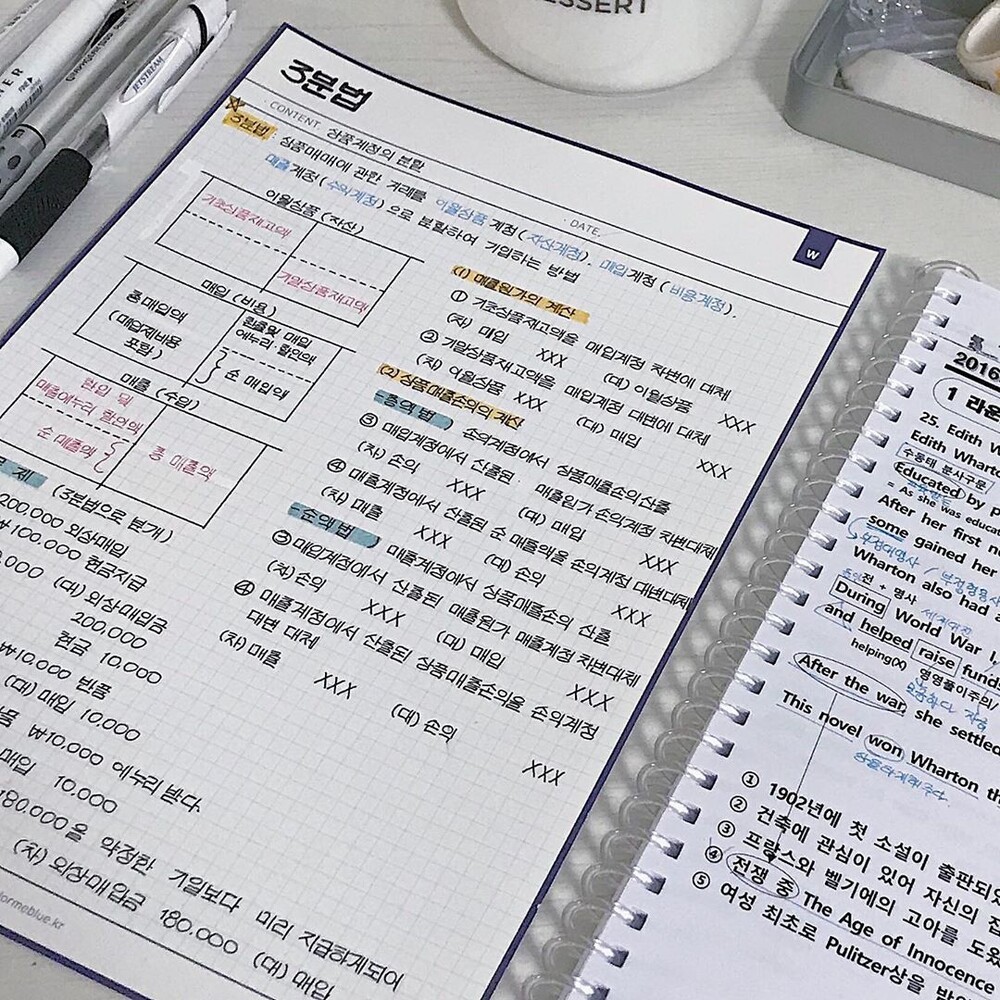 DESSERT
JETSTREAM
3분법
CONTENT. 상품계정의 분할
DATE.
W
3분법: 상품매매에 관한 거래를 이월상품 계정(자산계정), 매입계정(비용계정),
매출계정(수익계정)으로 분할하여 기입하는 방법
이월상품 (자산)
기초상품재고액
기말상품재고액
매입 (비용)
총매입액
(매입제비용
포함)
환출및 매입
에누리·할인액
순 매입액
매출 (수익)
환입 및
매출에누리·할인액
순 매출액
총 매출액
(1) 매출원가의 계산
① 기초상품재고액을 매입계정 차변에 대체
(차) 매입 XXX (대) 이월상품 XXX
② 기말상품재고액을 매입계정 대변에 대체
(차) 이월상품 XXX (대) 매입 XXX
(2) 상품매출손익의 계산
-총액법- 손익계정에서 상품매출손익산출
③ 매입계정에서 산출된 매출원가 손익계정 차변대체
(차) 손익 XXX (대) 매입 XXX
④ 매출계정에서 산출된 순 매출액을 손익계정 대변대체
(차) 매출 XXX (대) 손익 XXX
-순액법- 매출계정에서 상품매출손익 산출
③ 매입계정에서 산출된 매출원가 매출계정 차변대체
(차) 손익 XXX (대) 매입 XXX
④ 매출계정에서 산출된 상품매출손익을 손익계정
대변 대체
(차) 매출 XXX (대) 손익 XXX
제 (3분법으로 분개)
200,000 외상매입
₩100,000 현금지급
(대) 외상매입금
200,000
현금 10,000
₩10,000 반품
(대) 매입 10,000
₩10,000 에누리 받다.
매입 10,000
180,000을 약정한 기일보다 미리 지급하게되어
(차) 외상매입금 180,000 (대) 매입
formeblue.kr
2016
1 라운
25. Edith W
Edith Wharto
수동태 분사구문
Educated by p
= As she was educat
After her first n
some gained her
부정대명사 / 부정형용사
Wharton also had
전 + 명사
During World War I,
and helped raise funds
helping(X)
After the war, she settled
This novel won Wharton th
① 1902년에 첫 소설이 출판되었
② 건축에 관심이 있어 자신의 집
③ 프랑스와 벨기에의 고아를 도왔
④ 전쟁 중 The Age of Innocence
⑤ 여성 최초로 Pulitzer상을 받